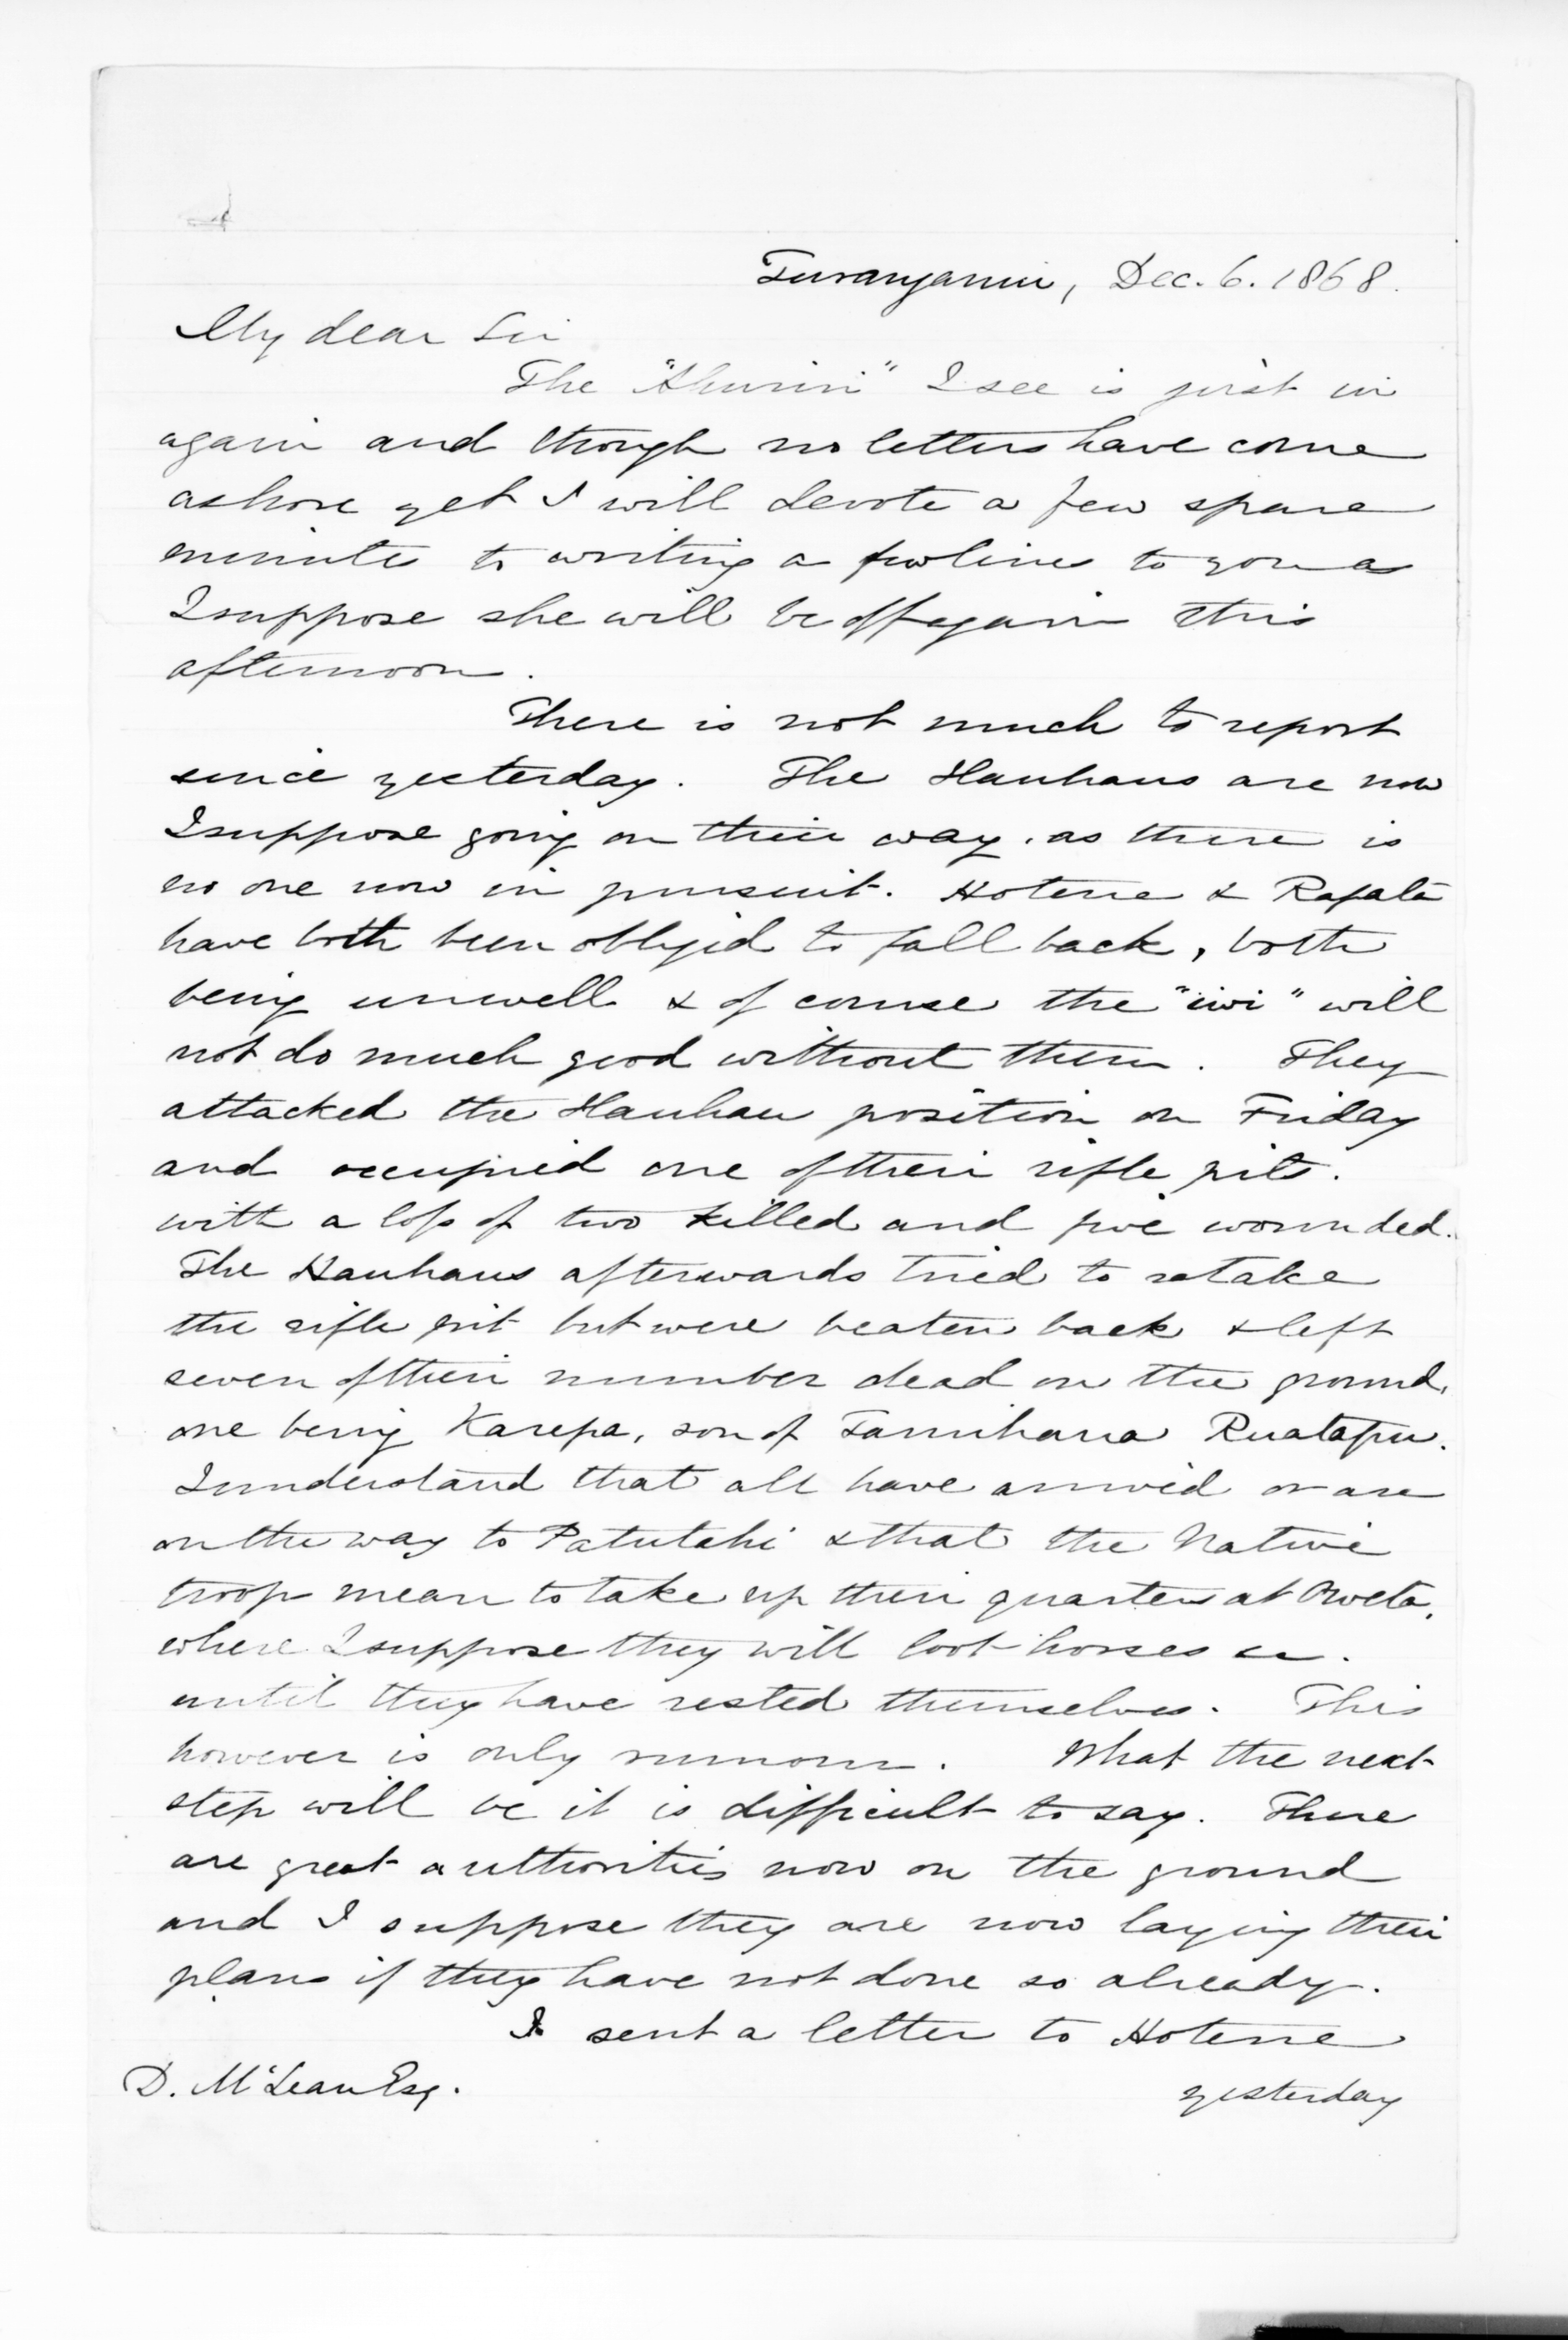 Turanganui, Dec. 6. 1868.
My dear Sir
The "Ahuriri" I see is just in
again and though no letters have come
ashore yet I will devote a few spare
minutes to writing a few lines to you as
I suppose she will be off again this
afternoon.
There is not much to report
since yesterday. The Hauhaus are now
I suppose going on their way, as there is
no one now in pursuit. Hotene & Rapata
have both been obliged to fall back, both
being unwell & of course the "iwi" will
not do much good without them. They
attacked the Hauhau position on Friday
and occupied one of their rifle pits.
with a loss of two killed and five wounded.
The Hauhaus afterwards tried to retake
the rifle pit but were beaten back & left
seven of their number dead on the ground,
one being Karepa, son of Tamihana Ruatapu.
I understand that all have arrived or are
on the way to Patutahi & that the Native
troops mean to take up their quarters at Oweta,
where I suppose they will loot horses &c.
until they have rested themselves. This
however is only rumour. What the next
step will be it is difficult to say. There
are great authorities now on the ground
and I suppose they are now laying their
plans if they have not done so already.
I sent a letter to Hotene
D. McLean Esq. yesterday